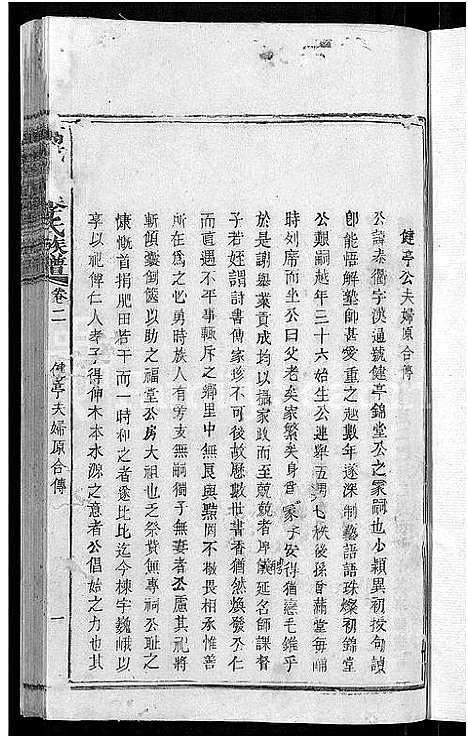 健亭公夫婦原合傳
公諱泰衢字漢通號健亭錦堂公之家嗣也少穎異初授句讀
卽能悟解塾師甚愛重之越數年遂深制藝語語珠燦初錦堂
公艱嗣越年二十六始生公連舉五男七秩後孫曾滿堂每晡
時列席而坐公曰父老矣家繁矣身爲家子安得猶戀毛錐乎
於是謝舉業貢成均以攝家政而至兢兢者厚聘延名師課督
子若姪謂詩書傳家珍不可絕故歷數世書香猶然煥發公仁
而直遇不平事輒斥之鄉里中無良與黠罔不極畏相承惟善
所在爲之必勇時族人有旁支無嗣獨子無妻者公慮其祀將
斬傾囊倒篋以助之福堂公房大祖也之祭費無專祠公耻之
慷慨首捐肥田若干而一時和之者遂比比迄今棟宇巍峨以
享以祀俾仁人孝子得伸木本水源之意者公倡始之力也其
氏族譜
卷二
健亭夫婦原合傳
一